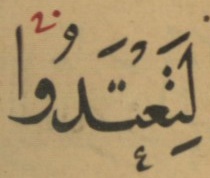 لِتَعْتَدُوا